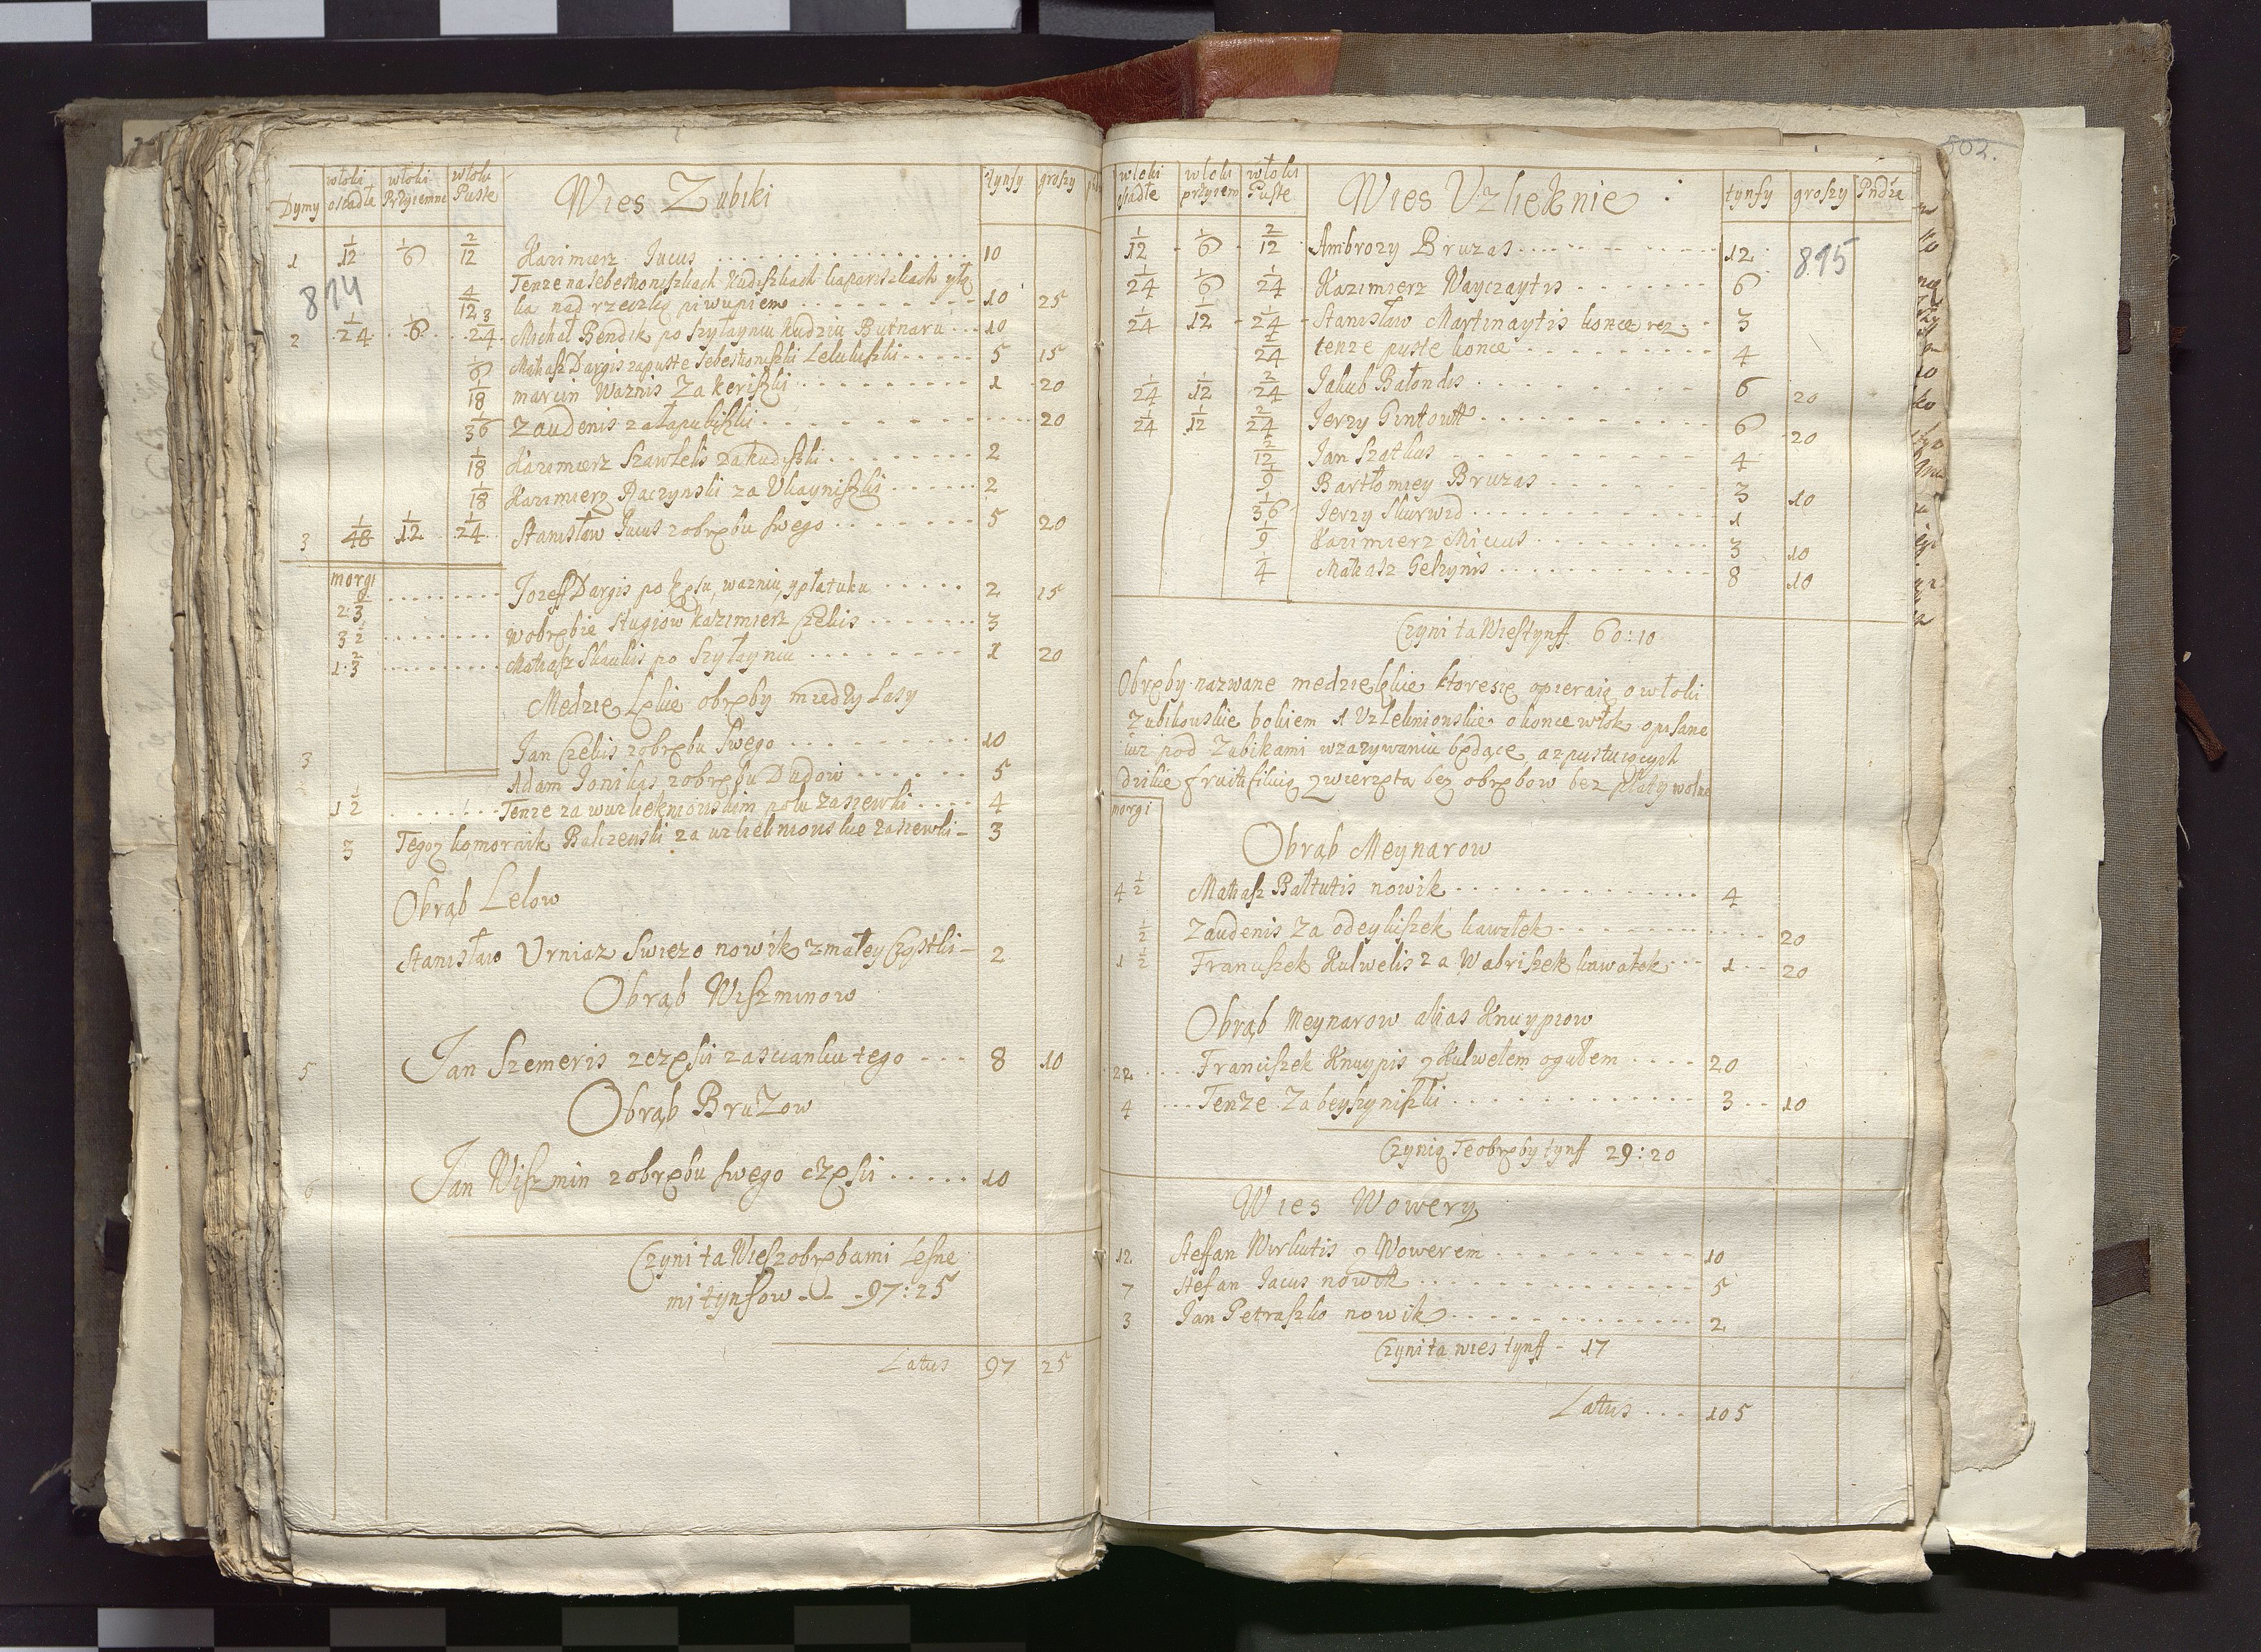 Dymy włoki osiadłe włoki Przyiemne włoki Puste Wies Zubiki tynfy groszy
1 1/12 1/6 2/12 Kazimierz Jucus 10
814
Tenze na Sebestkoniszkach Kudiszkach
4/12 ka nad rzeczką piwupiem 10 25
2 1/24 1/6 3/24 Michał Bendik po Szyłayniu Kudziu Bytnaru 10
1/6 Matiasz Dargis za puste Sebestkoniszki Leluliszki 5 15
1/18 marcin Waznis Za Keriszki 1 20
1/36 Zaudenis za Łapuliszki 20
1/18 Kazimierz Szawlelis za kudiszki 2
1/18 Kazimierz Raczynski za Ukayniszki 2
3 1/48 1/12 1/24 Stanisław Jucus z obrębu swego 5 20
morgi
2 1/3 Jozeff Dargis po Lelu, wazniu, y płatuku 2 15
3 1/2 w obrębie Stugiow Kazimierz Czekis 3
1 2/3 Matiasz Skaukis po Szyłayniu 1 20
Medzie Lękie obręby miedzy Lasy
3 Jan Czekis z obrębu swego 10
Adam Jonikas z obrębu Dudow 5
1 1/2 Tenze za w uzlieknionskim polu zasiewki 4
3 Tegoz komornik Balczewski za uzlieknionskie zasiewki 3
Obrąb Lelow
Stanisław Urniaz swiezo nowik z małey Cząstki 2
Obrąb Wiszminow
5 Jan Szemeris z częsci zascianku tego 8 10
Obrąb Bruzow
6 Jan Wiszmin z obrębu swego częsci 10
Czyni ta Wies z obrębami Lesne
mi tynfow 97:25
Latus 97 25
502.
włoki osiadłe włoki przyiem włoki Puste Wies Uzlieknie : tynfy groszy Pndze
1/12 1/6 2/12 Ambrozy Bruzas 12 815
1/24 1/6 1/24 Kazimierz Wayczaytis 6
1/24 1/12 1/24 Stanisław Martinaytis konce rez 3
1/24 tenze puste konce 4
1/24 1/12 2/24 Jakub Batondis 6 20
1/24 1/12 2/24 Jerzy Gintowtt 6 20
2/12 Jan Szatkus 4
1/9 Bartłomiey Bruzas 3 10
1/36 Jerzy Skurwid 1
1/9 Kazimierz Micius 3 10
1/4 Matiasz Gelzynis 8 10
Czyni ta Wies tynff 60:10
Obręby nazwane medzielękie ktore się opieraią o włoki
Zubikowskie bokiem A Uzleknionskie o konce włok opisane
iuz pod Zubikami w zazywaniu będące, a z pustuiących
dzikie fruitificuią zwierzęta bez obrębow bez płaty wolne
morgi
Obrąb Meynarow
4 1/2 Matiasz Baltutis nowik 4
1/2 Zaudenis Za odeykiszek kawałek 20
1 1/2 Franciszek Kulwelis za Wabriszek kawałek 1 20
Obrąb Meynarow alias Knuypiow
22 Franciszek Knuypis z Kulwelem ogułem 20
4 Tenze Za beyszyniszki 3 10
Czynią Te obręby tynff 29:20
Wies Wowery
12 Steffan Wirkutis z Wowerem 10
7 Stefan Jacus nowik 5
3 Jan Petraszko nowik 2
Czyni ta wies tynff - 17
Latus 105